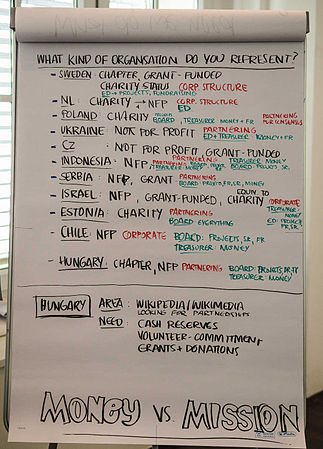 WHAT KIND OF ORGANISATION DO YOU REPRESENT?
- SWEDEN: CHAPTER, GRANT-FUNDED
CHARITY STATUS CORP. STRUCTURE
ED → PROJECTS, FUNDRAISING
- NL: CHARITY NFP CORP. STRUCTURE
ED
- POLAND: CHARITY PARTNERING
BOARD, TREASURER: MONEY + FR
- UKRAINE: NOT FOR PROFIT PARTNERING
ED + TREASURER MONEY + FR
- CZ NOT FOR PROFIT, GRANT-FUNDED
- INDONESIA: NFP, PARTNERING TREASURER: MONEY
- SERBIA: NFP, GRANT PARTNERING
BOARD: PROJ., FR, SR, MONEY
- ISRAEL: NFP, GRANT-FUNDED, EQUIV TO CHARITY CORPORATE
TREASURER: MONEY
ED: PROJECT
FR, SR
- ESTONIA: CHARITY PARTNERING
BOARD EVERYTHING
- CHILE: NFP CORPORATE BOARD: PROJECTS, SR, FR
TREASURER: MONEY
- HUNGARY: CHAPTER, NFP PARTNERING BOARD: PROJECTS, SR, FR
TREASURER: MONEY
HUNGARY AREA: WIKIPEDIA/WIKIMEDIA
LOOKING FOR PARTNERSHIPS
NEED: CASH RESERVES
VOLUNTEER-COMMITMENT
GRANTS + DONATIONS
MONEY VS. MISSION